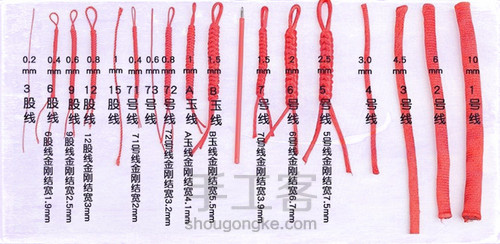 0.2 mm
3股线
0.4 mm
6股线
6股线金刚结宽1.9mm
0.6 mm
9股线
9股线金刚结宽2.5mm
0.8 mm
12股线
12股线金刚结宽3mm
1 mm
15股线
0.4 mm
71号线
71号线金刚结宽2mm
0.6 mm
73
0.8 mm
72号线
72号线金刚结宽3.2mm
1 mm
A玉线
A玉线金刚结宽4.1mm
1.5 mm
B玉线
B玉线金刚结宽5.5mm
1.5 mm
7号线
7号线金刚结宽3.9mm
2 mm
6号线
6号线金刚结宽6.7mm
2.5 mm
5号线
5号线金刚结宽7.5mm
3.0 mm
4号线
4.5 mm
3号线
6 mm
2号线
10 mm
1号线
手工客
shougongke.com